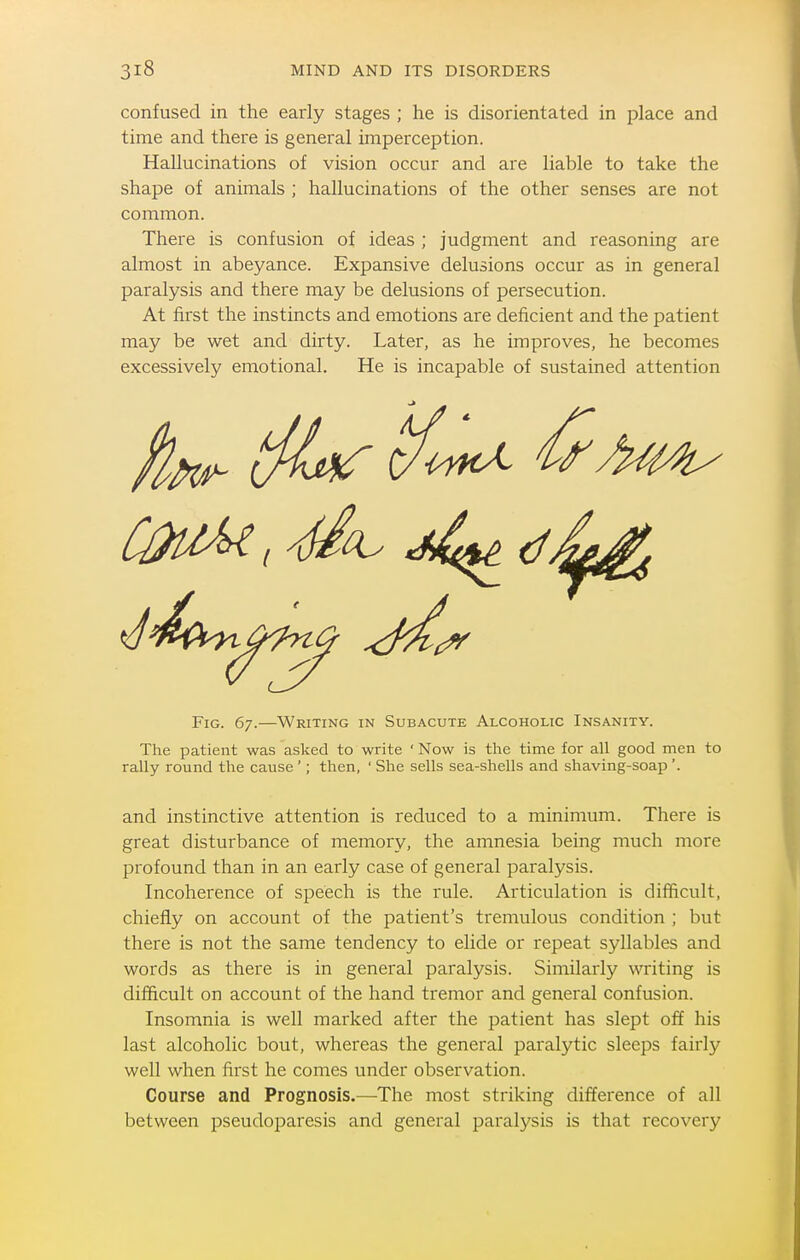 318 MIND AND ITS DISORDERS
confused in the early stages ; he is disorientated in place and
time and there is general imperception.
Hallucinations of vision occur and are liable to take the
shape of animals ; hallucinations of the other senses are not
common.
There is confusion of ideas ; judgment and reasoning are
almost in abeyance. Expansive delusions occur as in general
paralysis and there may be delusions of persecution.
At first the instincts and emotions are deficient and the patient
may be wet and dirty. Later, as he improves, he becomes
excessively emotional. He is incapable of sustained attention
FIG. 67.—WRITING IN SUBACUTE ALCOHOLIC INSANITY.
The patient was asked to write ' Now is the time for all good men to
rally round the cause ' ; then, ' She sells sea-shells and shaving-soap '.
and instinctive attention is reduced to a minimum. There is
great disturbance of memory, the amnesia being much more
profound than in an early case of general paralysis.
Incoherence of speech is the rule. Articulation is difficult,
chiefly on account of the patient's tremulous condition ; but
there is not the same tendency to elide or repeat syllables and
words as there is in general paralysis. Similarly writing is
difficult on account of the hand tremor and general confusion.
Insomnia is well marked after the patient has slept off his
last alcoholic bout, whereas the general paralytic sleeps fairly
well when first he comes under observation.
Course and Prognosis.—The most striking difference of all
between pseudoparesis and general paralysis is that recovery